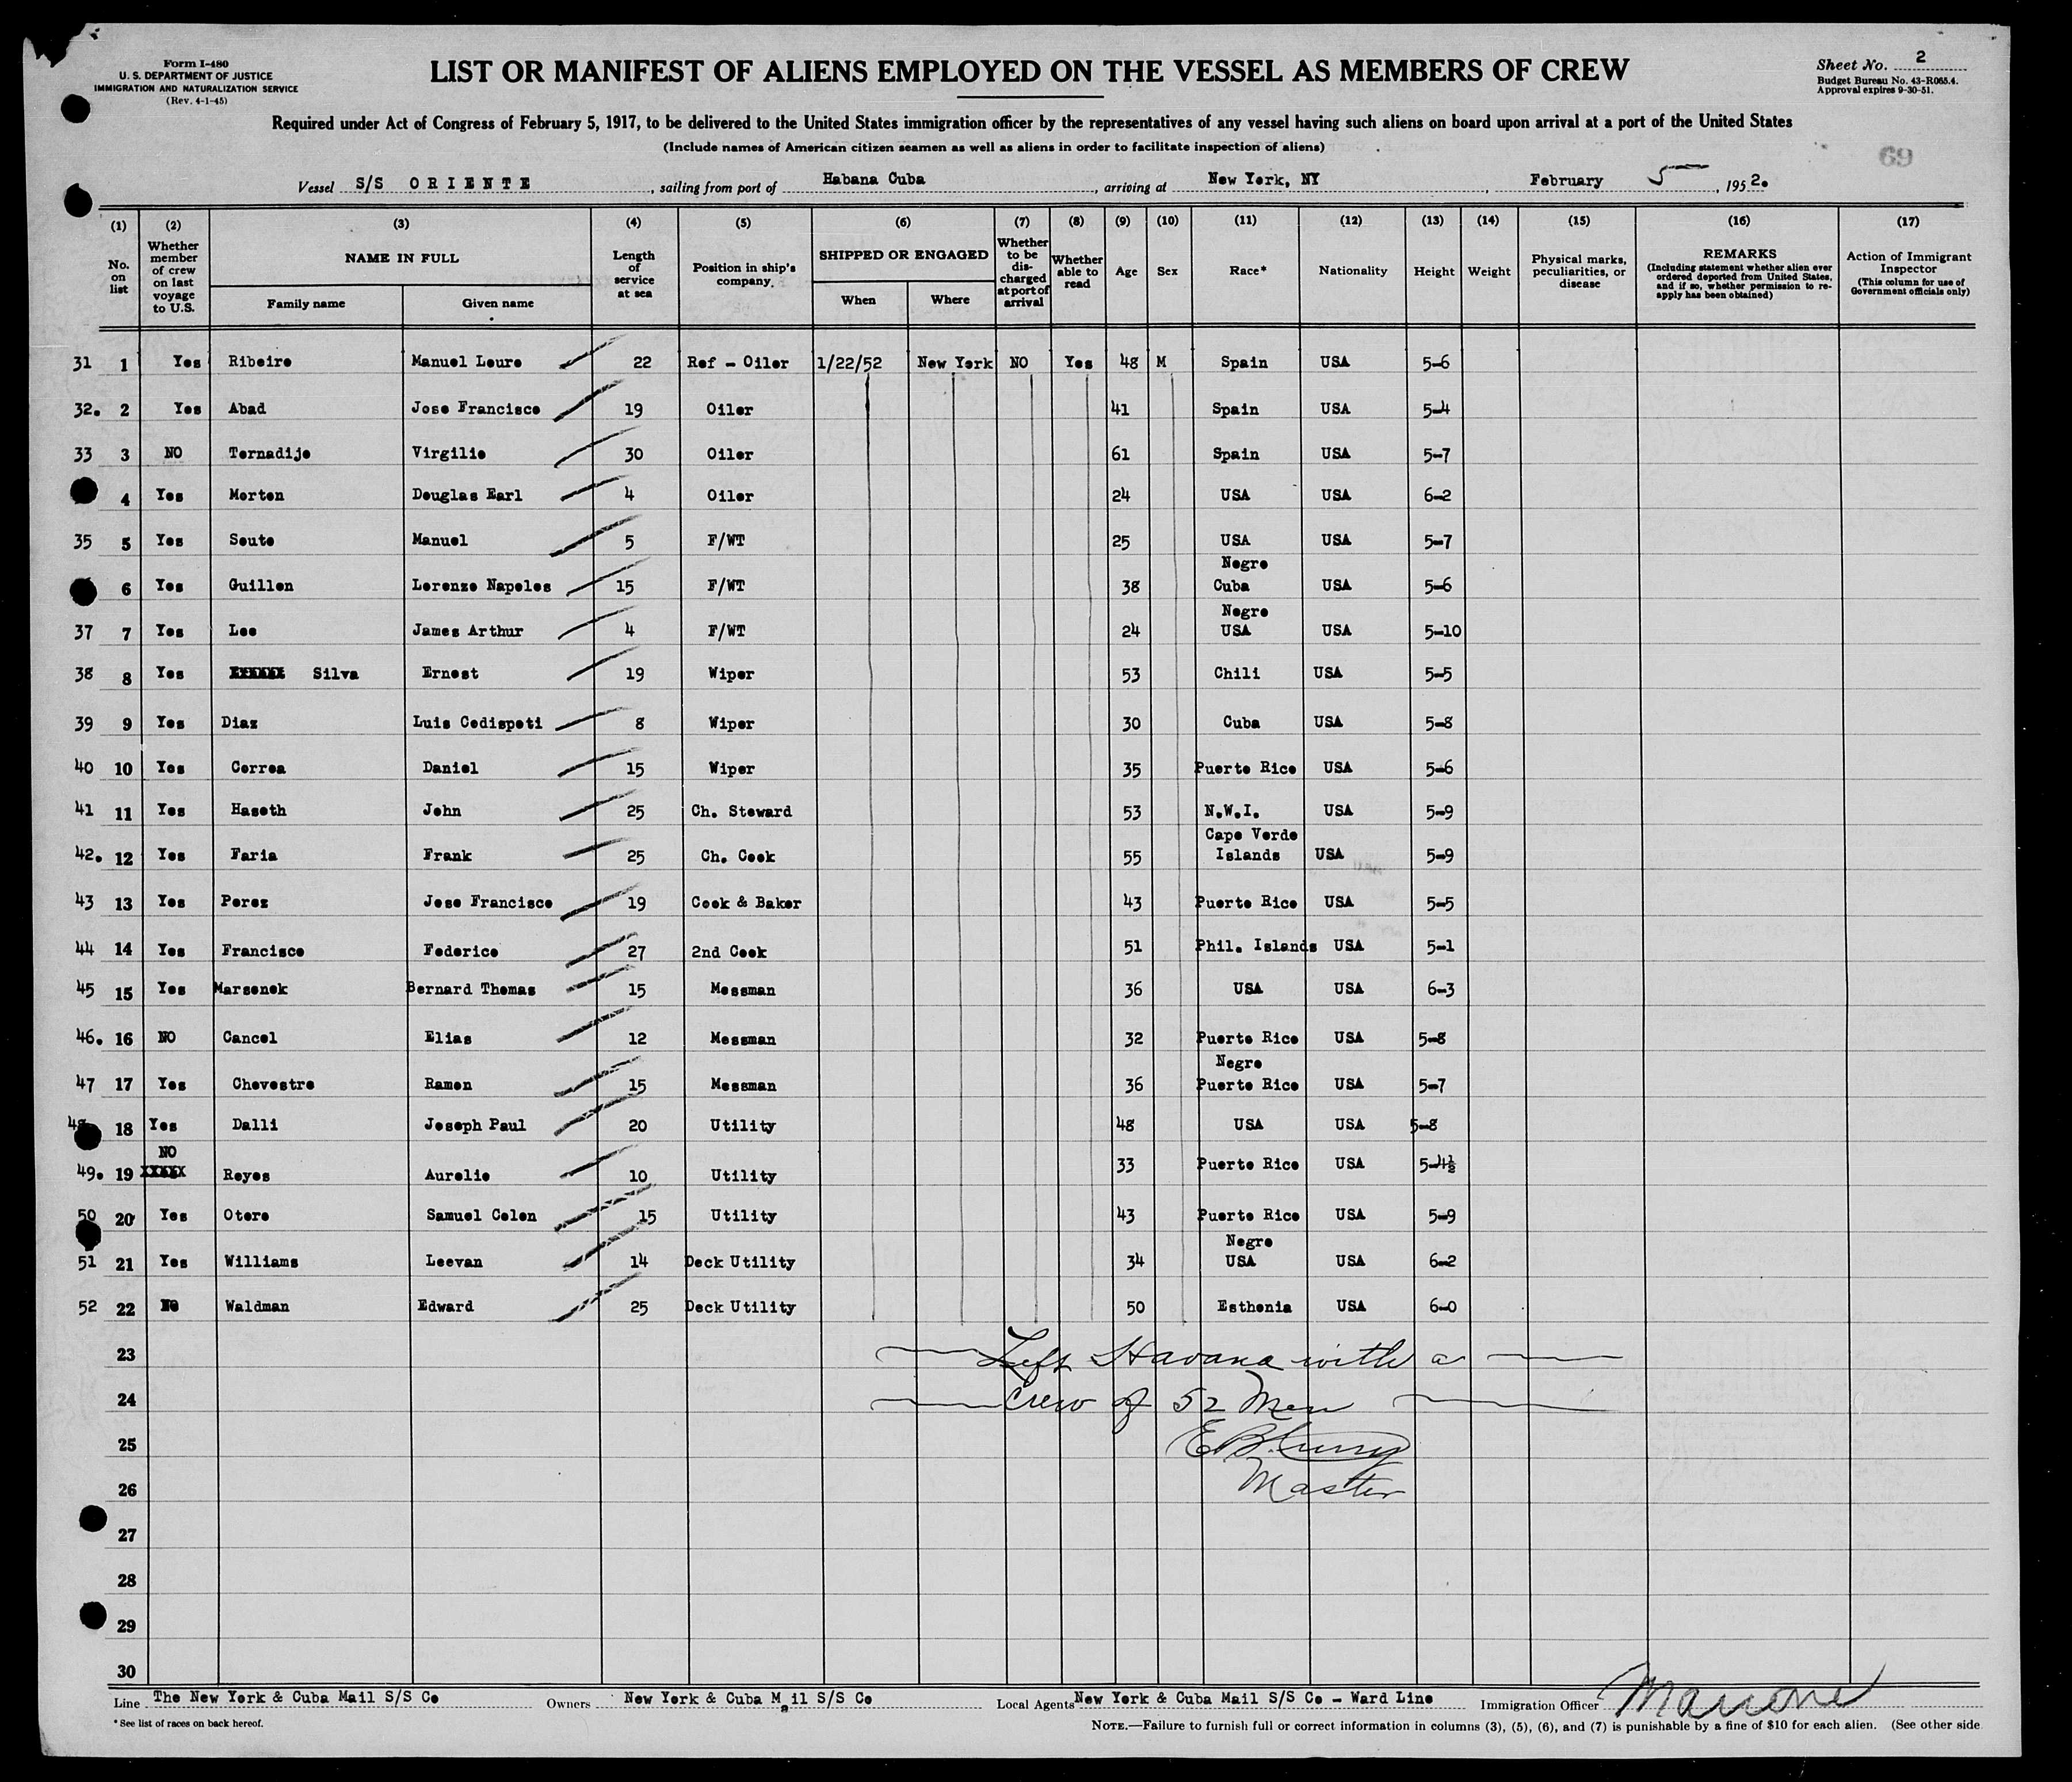 Form I-480
U. S. DEPARTMENT OF JUSTICE
IMMIGRATION AND NATURALIZATION SERVICE
(Rev. 4-1-45)
LIST OR MANIFEST OF ALIENS EMPLOYED ON THE VESSEL AS MEMBERS OF CREW
Sheet No. 2
Budget Bureau No. 43-R065.4.
Approval expires 9-30-51.
Required under Act of Congress of February 5, 1917, to be delivered to the United States immigration officer by the representatives of any vessel having such aliens on board upon arrival at a port of the United States
(Include names of American citizen seamen as well as aliens in order to facilitate inspection of aliens)
69
Vessel S/S ORIENTE, sailing from port of Habana Cuba, arriving at New York, NY, February 5, 1952.
(1) (2) (3) (4) (5) (6) (7) (8) (9) (10) (11) (12) (13) (14) (15) (16) (17)
No. on list
Whether member of crew on last voyage to U.S.
NAME IN FULL
Family name
Given name
Length of service at sea
Position in ship's company
SHIPPED OR ENGAGED
When
Where
Whether to be discharged at port of arrival
Whether able to read
Age
Sex
Race*
Nationality
Height
Weight
Physical marks, peculiarities, or disease
REMARKS
(Including statement whether alien ever ordered deported from United States, and if so, whether permission to re-apply has been obtained)
Action of Immigrant Inspector
(This column for use of Government officials only)
31 1 Yes Ribeiro Manuel Loure 22 Ref - Oiler 1/22/52 New York NO Yes 48 M Spain USA 5-6
32. 2 Yes Abad Jose Francisco 19 Oiler 41 Spain USA 5-4
33 3 NO Ternadijo Virgilio 30 Oiler 61 Spain USA 5-7
4 Yes Morton Douglas Earl 4 Oiler 24 USA USA 6-2
35 5 Yes Souto Manuel 5 F/WT 25 USA USA 5-7
6 Yes Guillen Lorenzo Napoles 15 F/WT 38 Negro Cuba USA 5-6
37 7 Yes Lee James Arthur 4 F/WT 24 Negro USA USA 5-10
38 8 Yes Silva Ernest 19 Wiper 53 Chili USA 5-5
39 9 Yes Diaz Luis Codispoti 8 Wiper 30 Cuba USA 5-8
40 10 Yes Correa Daniel 15 Wiper 35 Puerto Rico USA 5-6
41 11 Yes Haseth John 25 Ch. Steward 53 N.W.I. USA 5-9
42. 12 Yes Faria Frank 25 Ch. Cook 55 Cape Verde Islands USA 5-9
43 13 Yes Perez Jose Francisco 19 Cook & Baker 43 Puerto Rico USA 5-5
44 14 Yes Francisco Federico 27 2nd Cook 51 Phil. Islands USA 5-1
45 15 Yes Marsonek Bernard Thomas 15 Messman 36 USA USA 6-3
46. 16 NO Cancel Elias 12 Messman 32 Puerto Rico USA 5-8
47 17 Yes Chevestre Ramon 15 Messman 36 Negro Puerto Rico USA 5-7
48 18 Yes Dalli Joseph Paul 20 Utility 48 USA USA 5-8
49. 19 NO Reyes Aurelio 10 Utility 33 Puerto Rico USA 5-4½
50 20 Yes Otero Samuel Colon 15 Utility 43 Puerto Rico USA 5-9
51 21 Yes Williams Leevan 14 Deck Utility 34 Negro USA USA 6-2
52 22 No Waldman Edward 25 Deck Utility 50 Esthonia USA 6-0
23 Left Havana with a
24 Crew of 52 Men
25 E.B.
26 Master
27
28
29
30
Line The New York & Cuba Mail S/S Co Owners New York & Cuba Mail S/S Co Local Agents New York & Cuba Mail S/S Co - Ward Line Immigration Officer
* See list of races on back hereof.
NOTE.—Failure to furnish full or correct information in columns (3), (5), (6), and (7) is punishable by a fine of $10 for each alien. (See other side